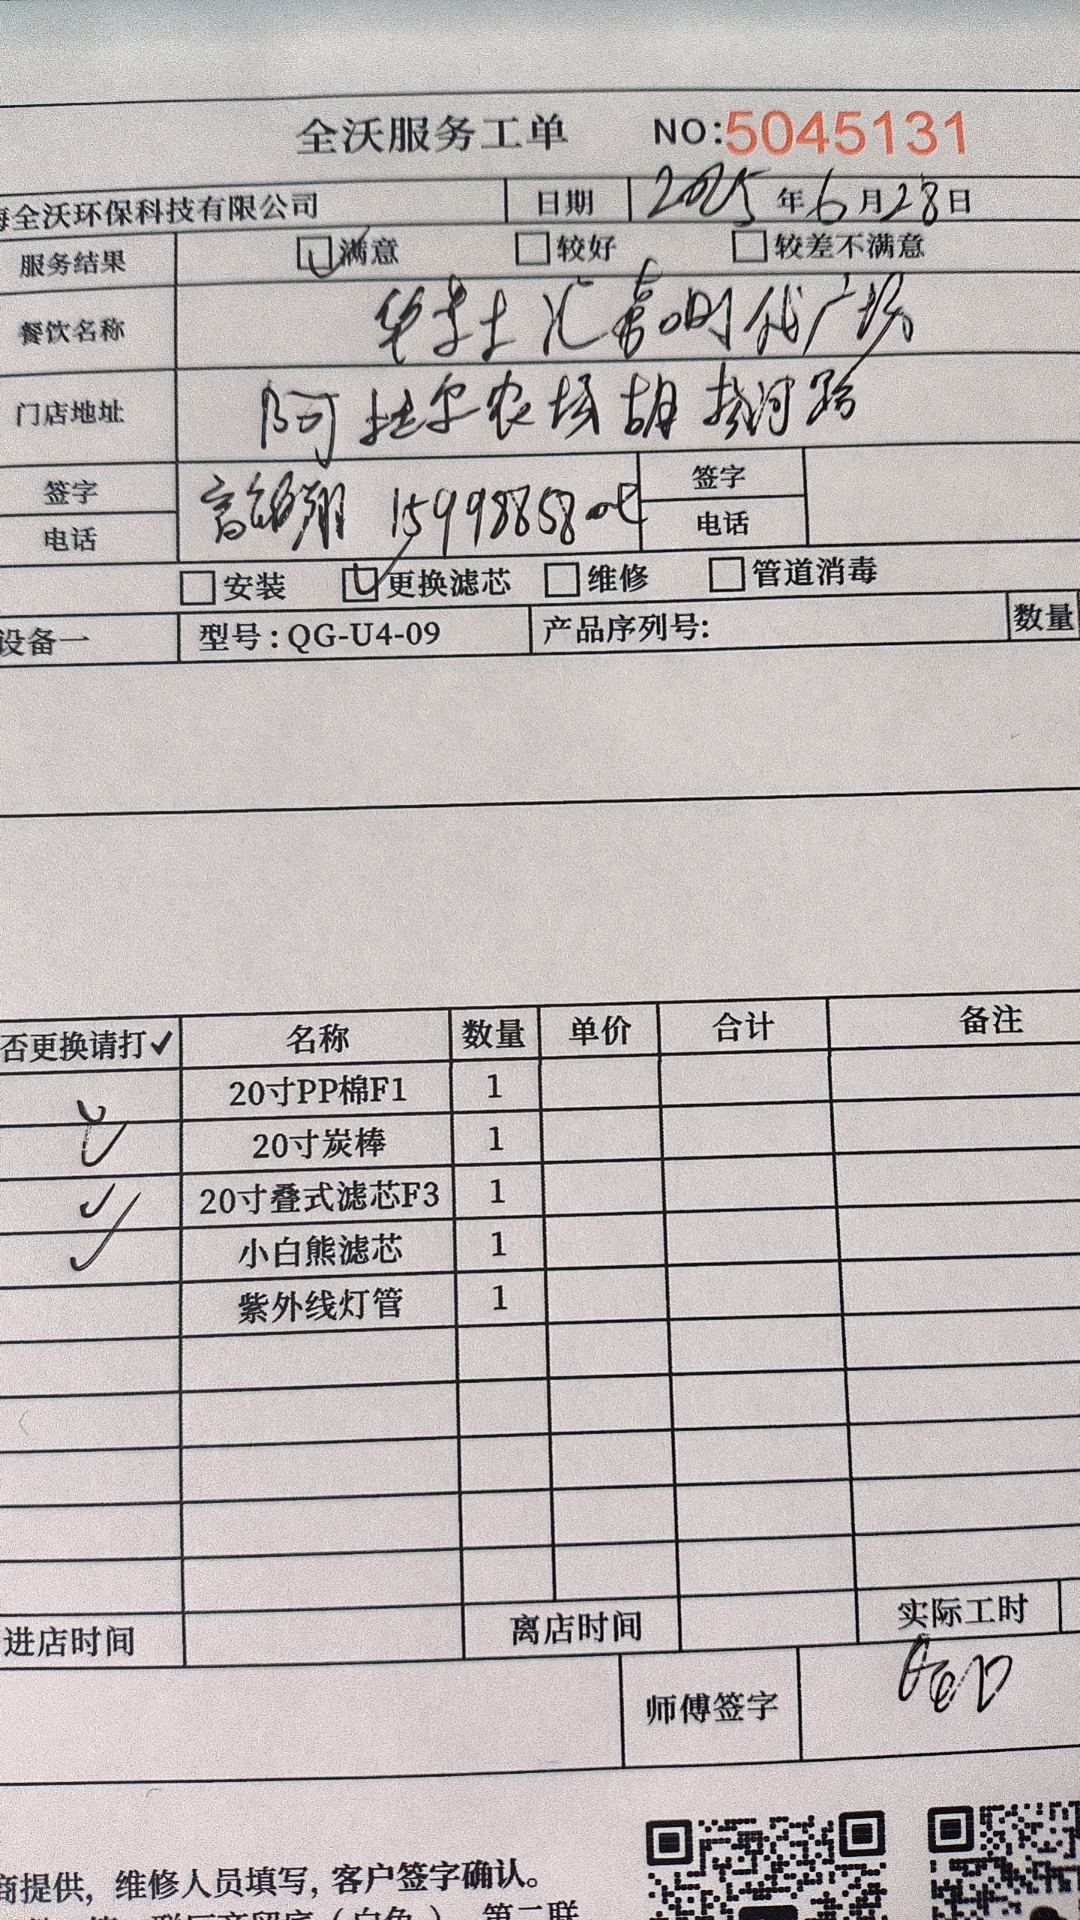 全沃服务工单 NO:5045131
海全沃环保科技有限公司 日期 2025年6月28日
服务结果 满意 较好 较差不满意
餐饮名称 华莱士汇嘉时代广场
门店地址 阿拉尔农场胡杨河路
签字 签字
电话 电话
安装 更换滤芯 维修 管道消毒
设备一 型号:QG-U4-09 产品序列号: 数量
否更换请打✓ 名称 数量 单价 合计 备注
✓ 20寸PP棉F1 1
✓ 20寸炭棒 1
✓ 20寸叠式滤芯F3 1
✓ 小白熊滤芯 1
紫外线灯管 1
进店时间 离店时间 实际工时
师傅签字
商提供，维修人员填写，客户签字确认。